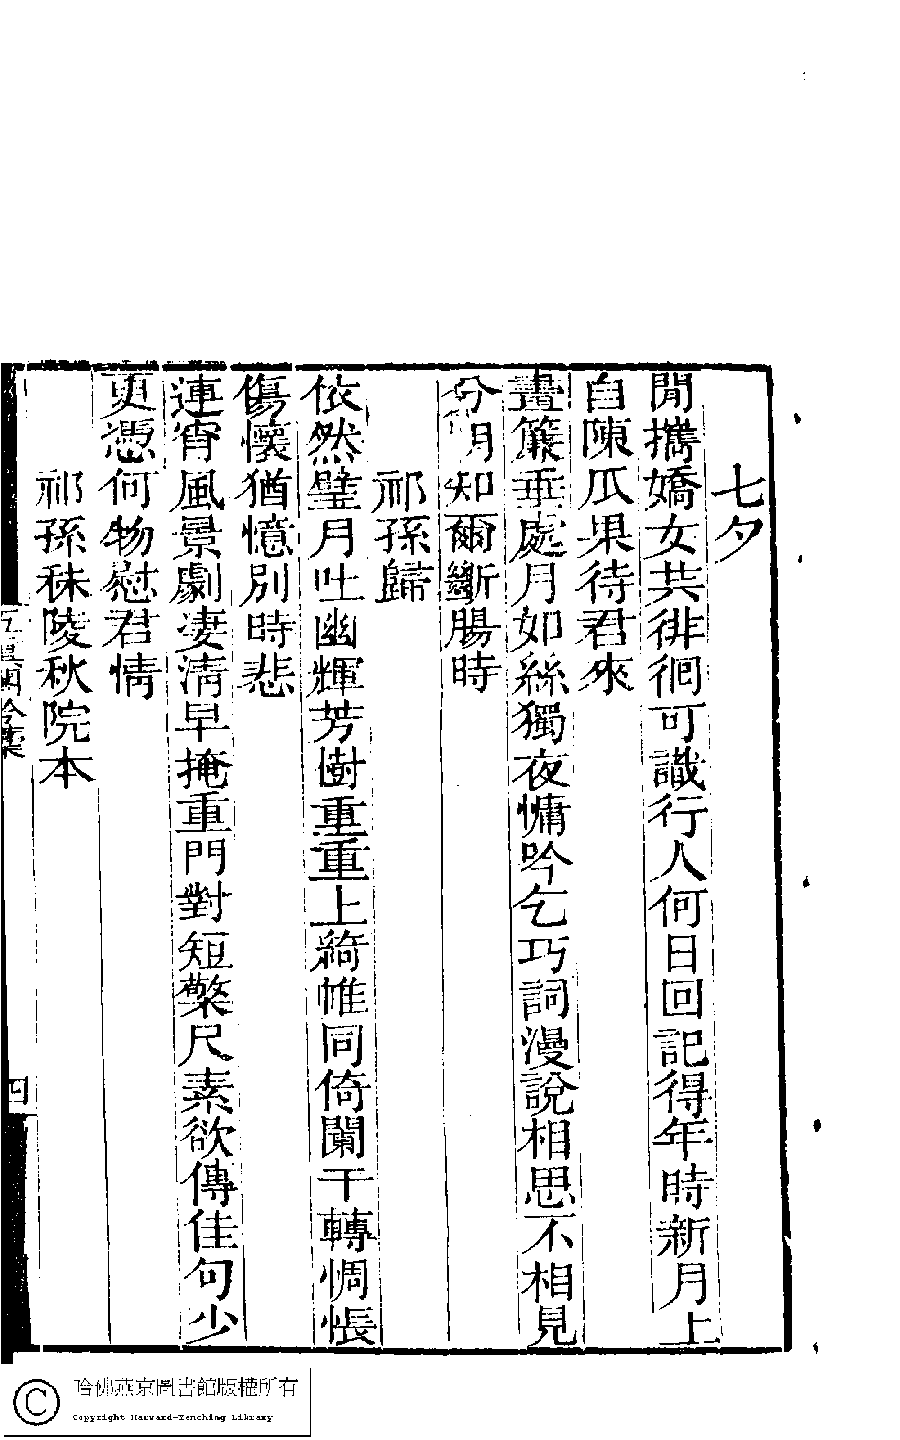 七夕
閒攜嬌女共徘徊可識行人何日回記得年時新月上
自陳瓜果待君來
畫簾垂處月如絲獨夜慵吟乞巧詞漫說相思不相見
分明知爾斷腸時
祁孫歸
依然璧月吐幽輝芳樹重重上綺帷同倚闌干轉惆悵
傷懷猶憶別時悲
連宵風景劇淒清早掩重門對短檠尺素欲傳佳句少
更憑何物慰君情
祁孫秣陵秋院本
四
哈佛燕京圖書館版權所有
Copyright Harvard-Yenching Library